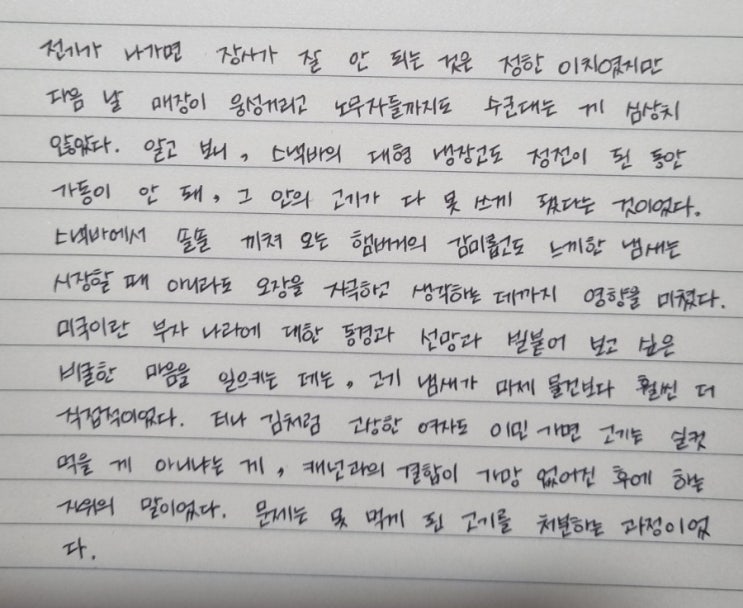 전기가 나가면 장사가 잘 안 되는 것은 정한 이치였지만
다음 날 매장이 웅성거리고 노무자들까지도 수군대는 게 심상치
않았다. 알고 보니, 스낵바의 대형 냉장고도 정전이 된 동안
가동이 안 돼, 그 안의 고기가 다 못 쓰게 됐다는 것이었다.
스낵바에서 풀풀 끼쳐 오는 햄버거의 감미롭고도 느끼한 냄새는
시장할 때 아니라도 오장을 자극하고 생각하는 데까지 영향을 미쳤다.
미국이란 부자 나라에 대한 동경과 선망과 빌붙어 보고 싶은
비굴한 마음을 일으키는 데는, 고기 냄새가 미제 물건보다 훨씬 더
직접적이었다. 티나 김처럼 고상한 여자도 이민 가면 고기는 실컷
먹을 게 아니냐는 게, 캐넌과의 결합이 가망 없어진 후에 하는
자위의 말이었다. 문제는 못 먹게 된 고기를 처분하는 과정이었
다.